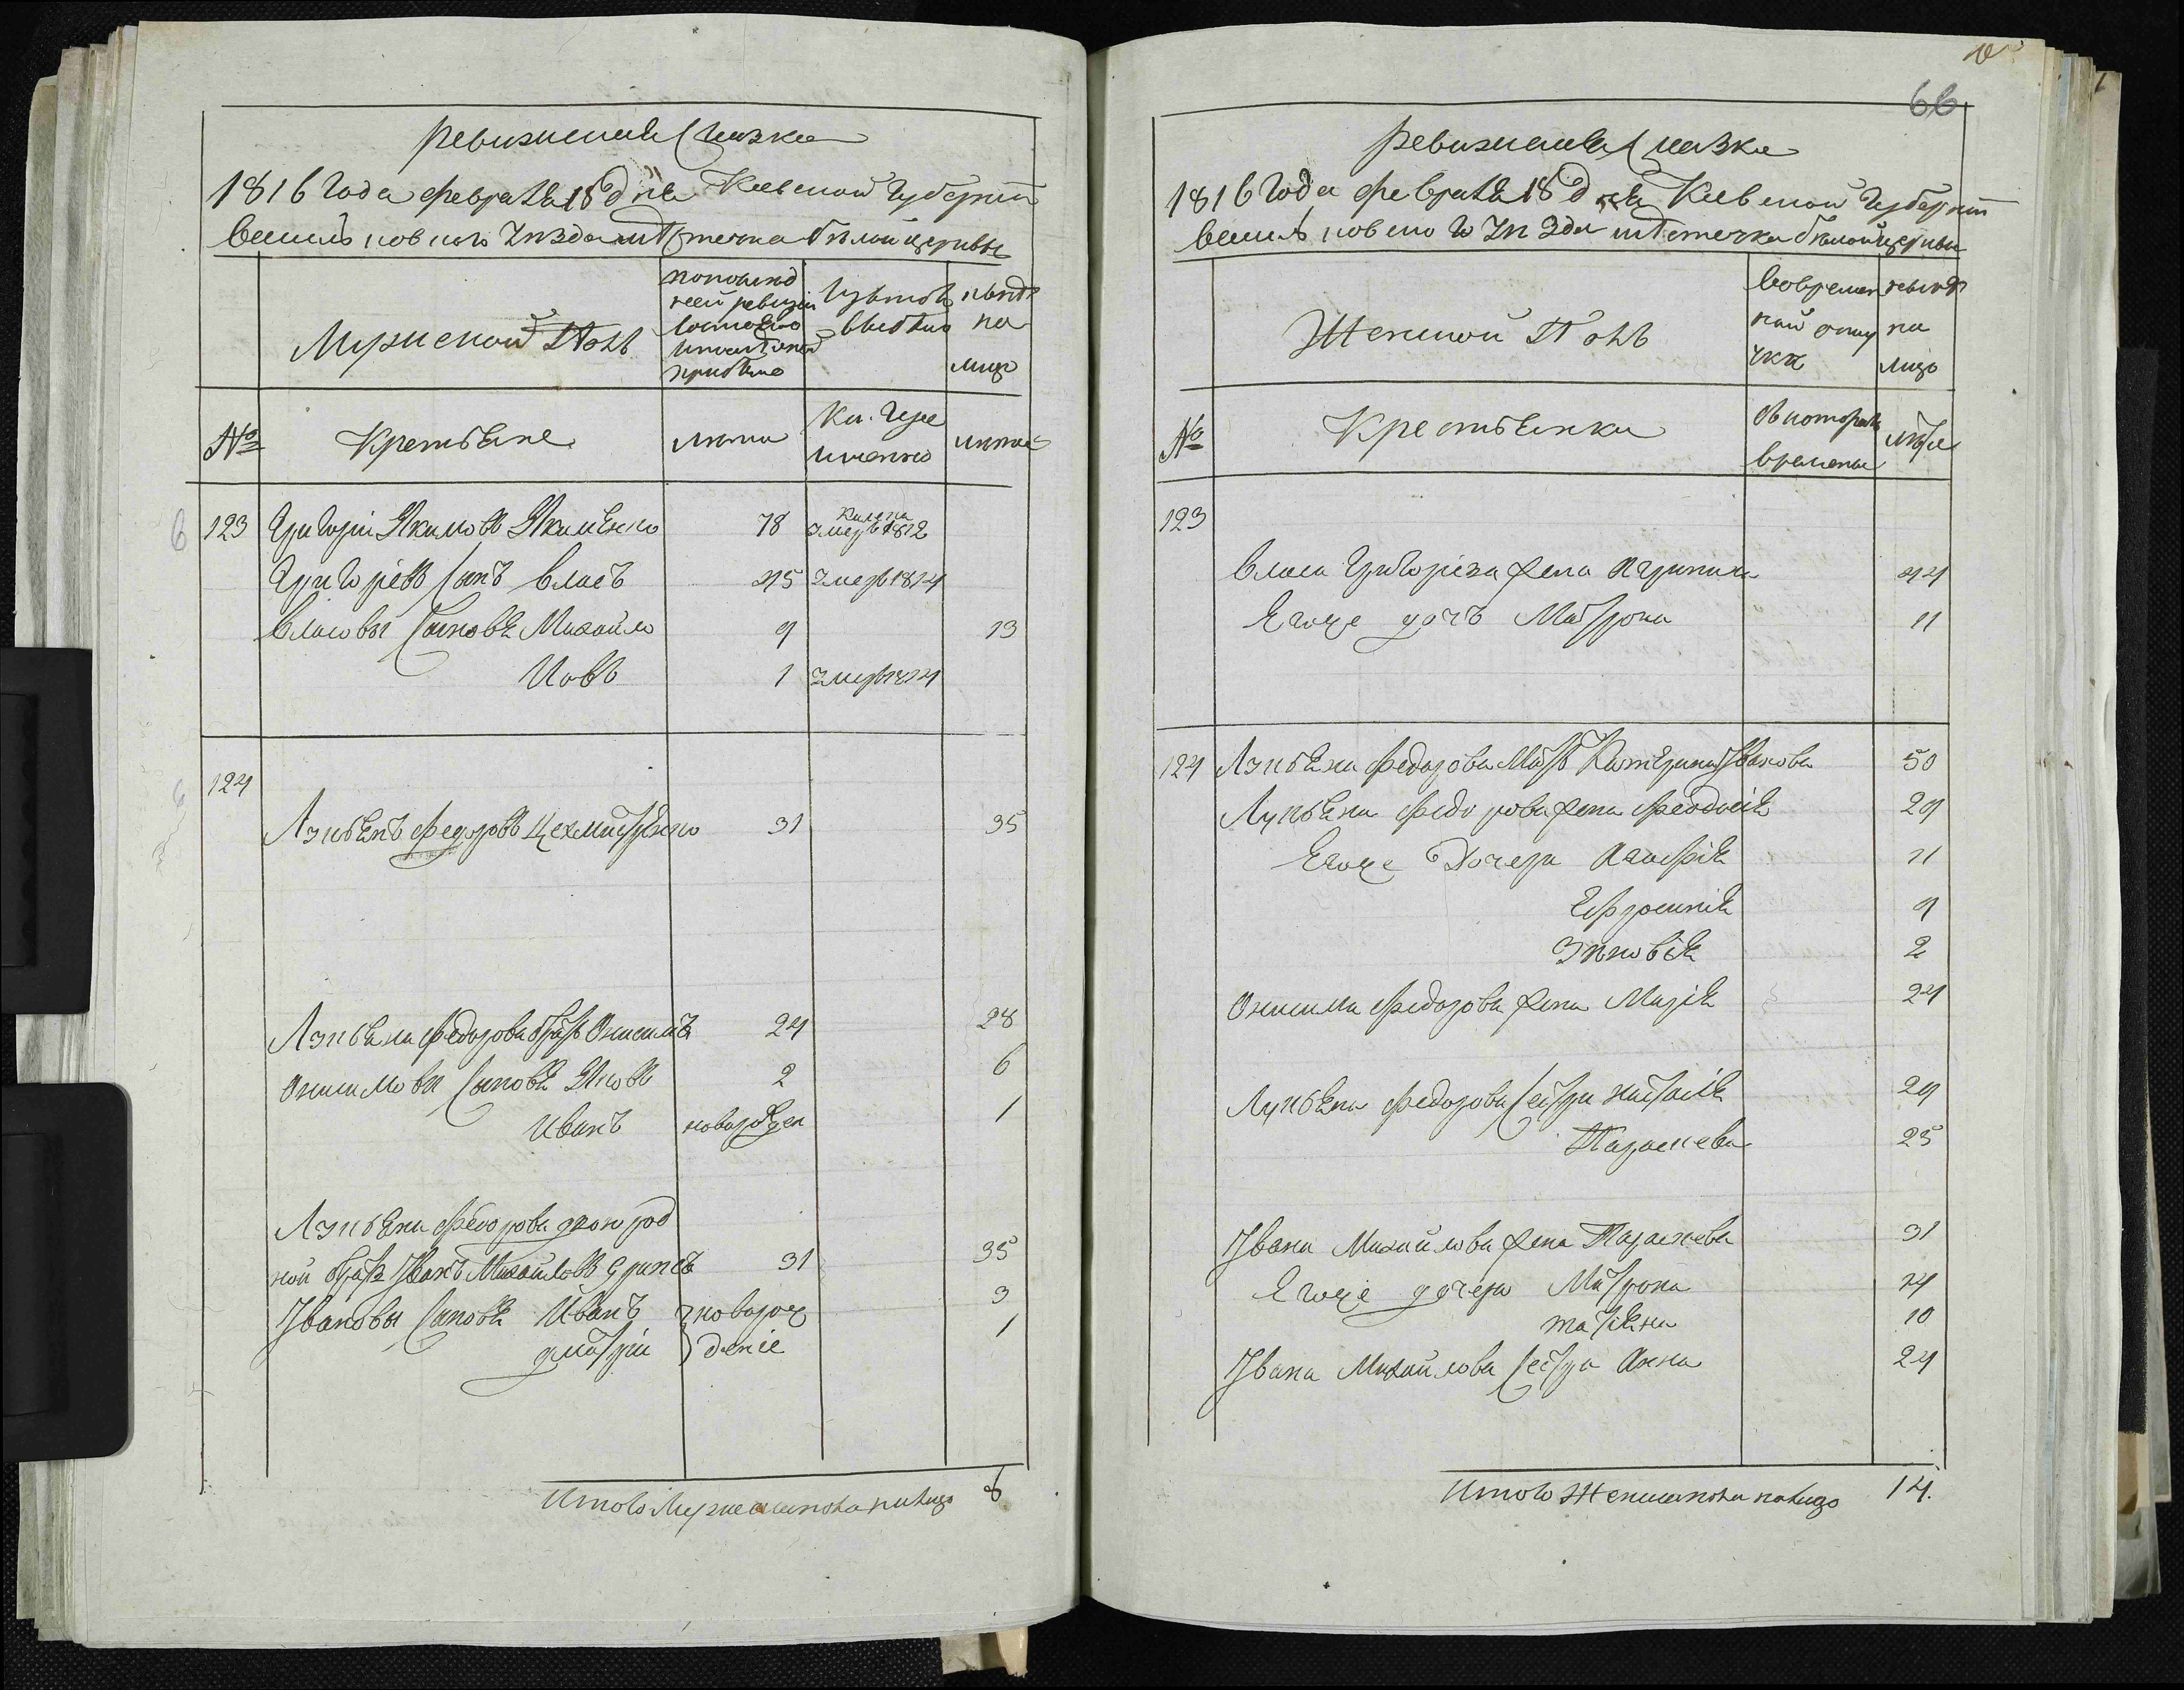 ревизская сказка
1816 года февраля 18 дня Киевской Губернии
василь ковского уезда местечка белой церквы
Мужеской полъ
попослед
ней ревизіи
состояло
и после оной
прибыло
изътого
выбыло
ныне
на
лицо
№
Крестьяне
лета
Когда
именно
лета
123 Григорій Якимовъ Якименко 78 умеръ 1812
Григоріевъ сынъ власъ 45 умеръ 1814
власовы сыновья Михайло 9 13
Иовъ 1 умеръ 1814
124
Лукьянъ Федоровъ Цехмистренко 31 35
Лукьяна Федорова братъ Онисимъ 24 28
Онисимовы сыновья Яковъ 2 6
Иванъ новорожден 1
Лукьяна Федорова двоюрод
ной братъ Иванъ Михайловъ 31 35
Ивановы сыновья Иванъ новорож 3
дмитрій деніе 1
Итого Мужеска пола налицо 6
66
ревизская сказка
1816 года февраля 18 дня Киевской Губерніи
василь ковского уезда местечка белой церквы
Женской Полъ
вовремен
ной отлу
чке
ныне
на
лицо
№
Крестьянки
съ котораго
времены
лета
123
власа Григоріева жена Агрипина 44
Егоже дочъ Матрона 11
124 Лукьяна Федорова Мать Катерина Иванова 50
Лукьяна Федорова жена Феодосія 29
Егоже Дочери Агафія 11
Ефросинія 9
Зиновія 2
Онисима Федорова жена Марія 24
Лукьяна Федорова сестры Настасія 29
Парасковья 25
Ивана Михайлова жена Парасковья 31
Егоже дочери Матрона 14
татіяна 10
Ивана Михайлова сестра Анна 24
Итого Женска пола налицо 14.